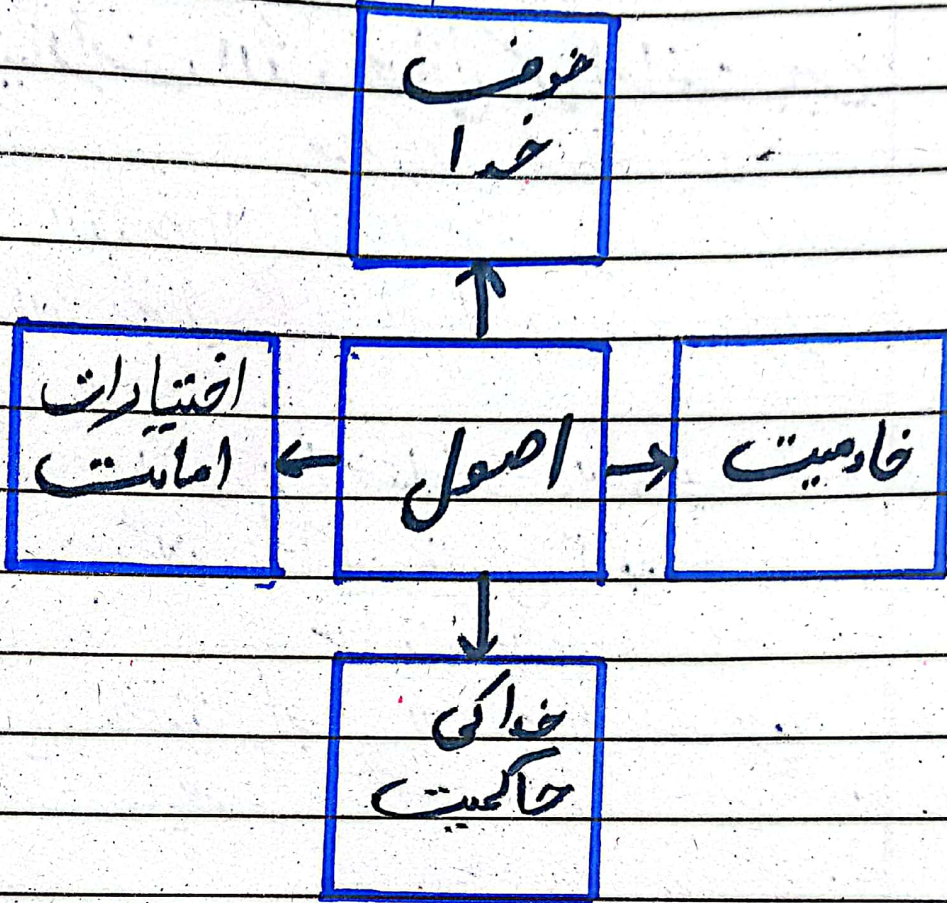 خوف
خدا
خادمیت
اصول
اختیارات
امانت
خدا کی
حاکمیت